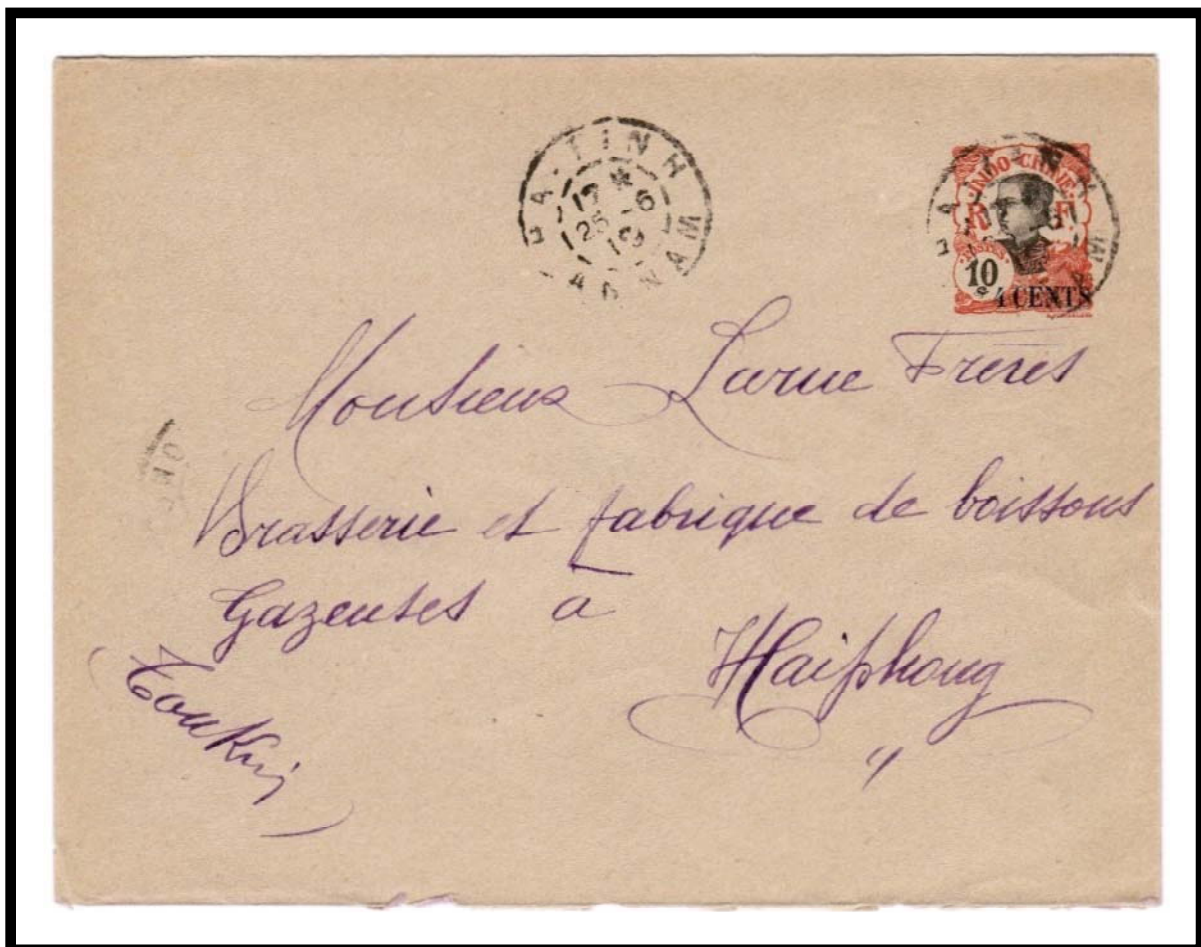 HA-TINH
17 *
25 -6
19
ANNAM
INDO-CHINE
R F
POSTES
10
4 CENTS
Monsieur Larue Frères
Brasserie et fabrique de boissons
Gazeuses à
Haiphong
Tonkin